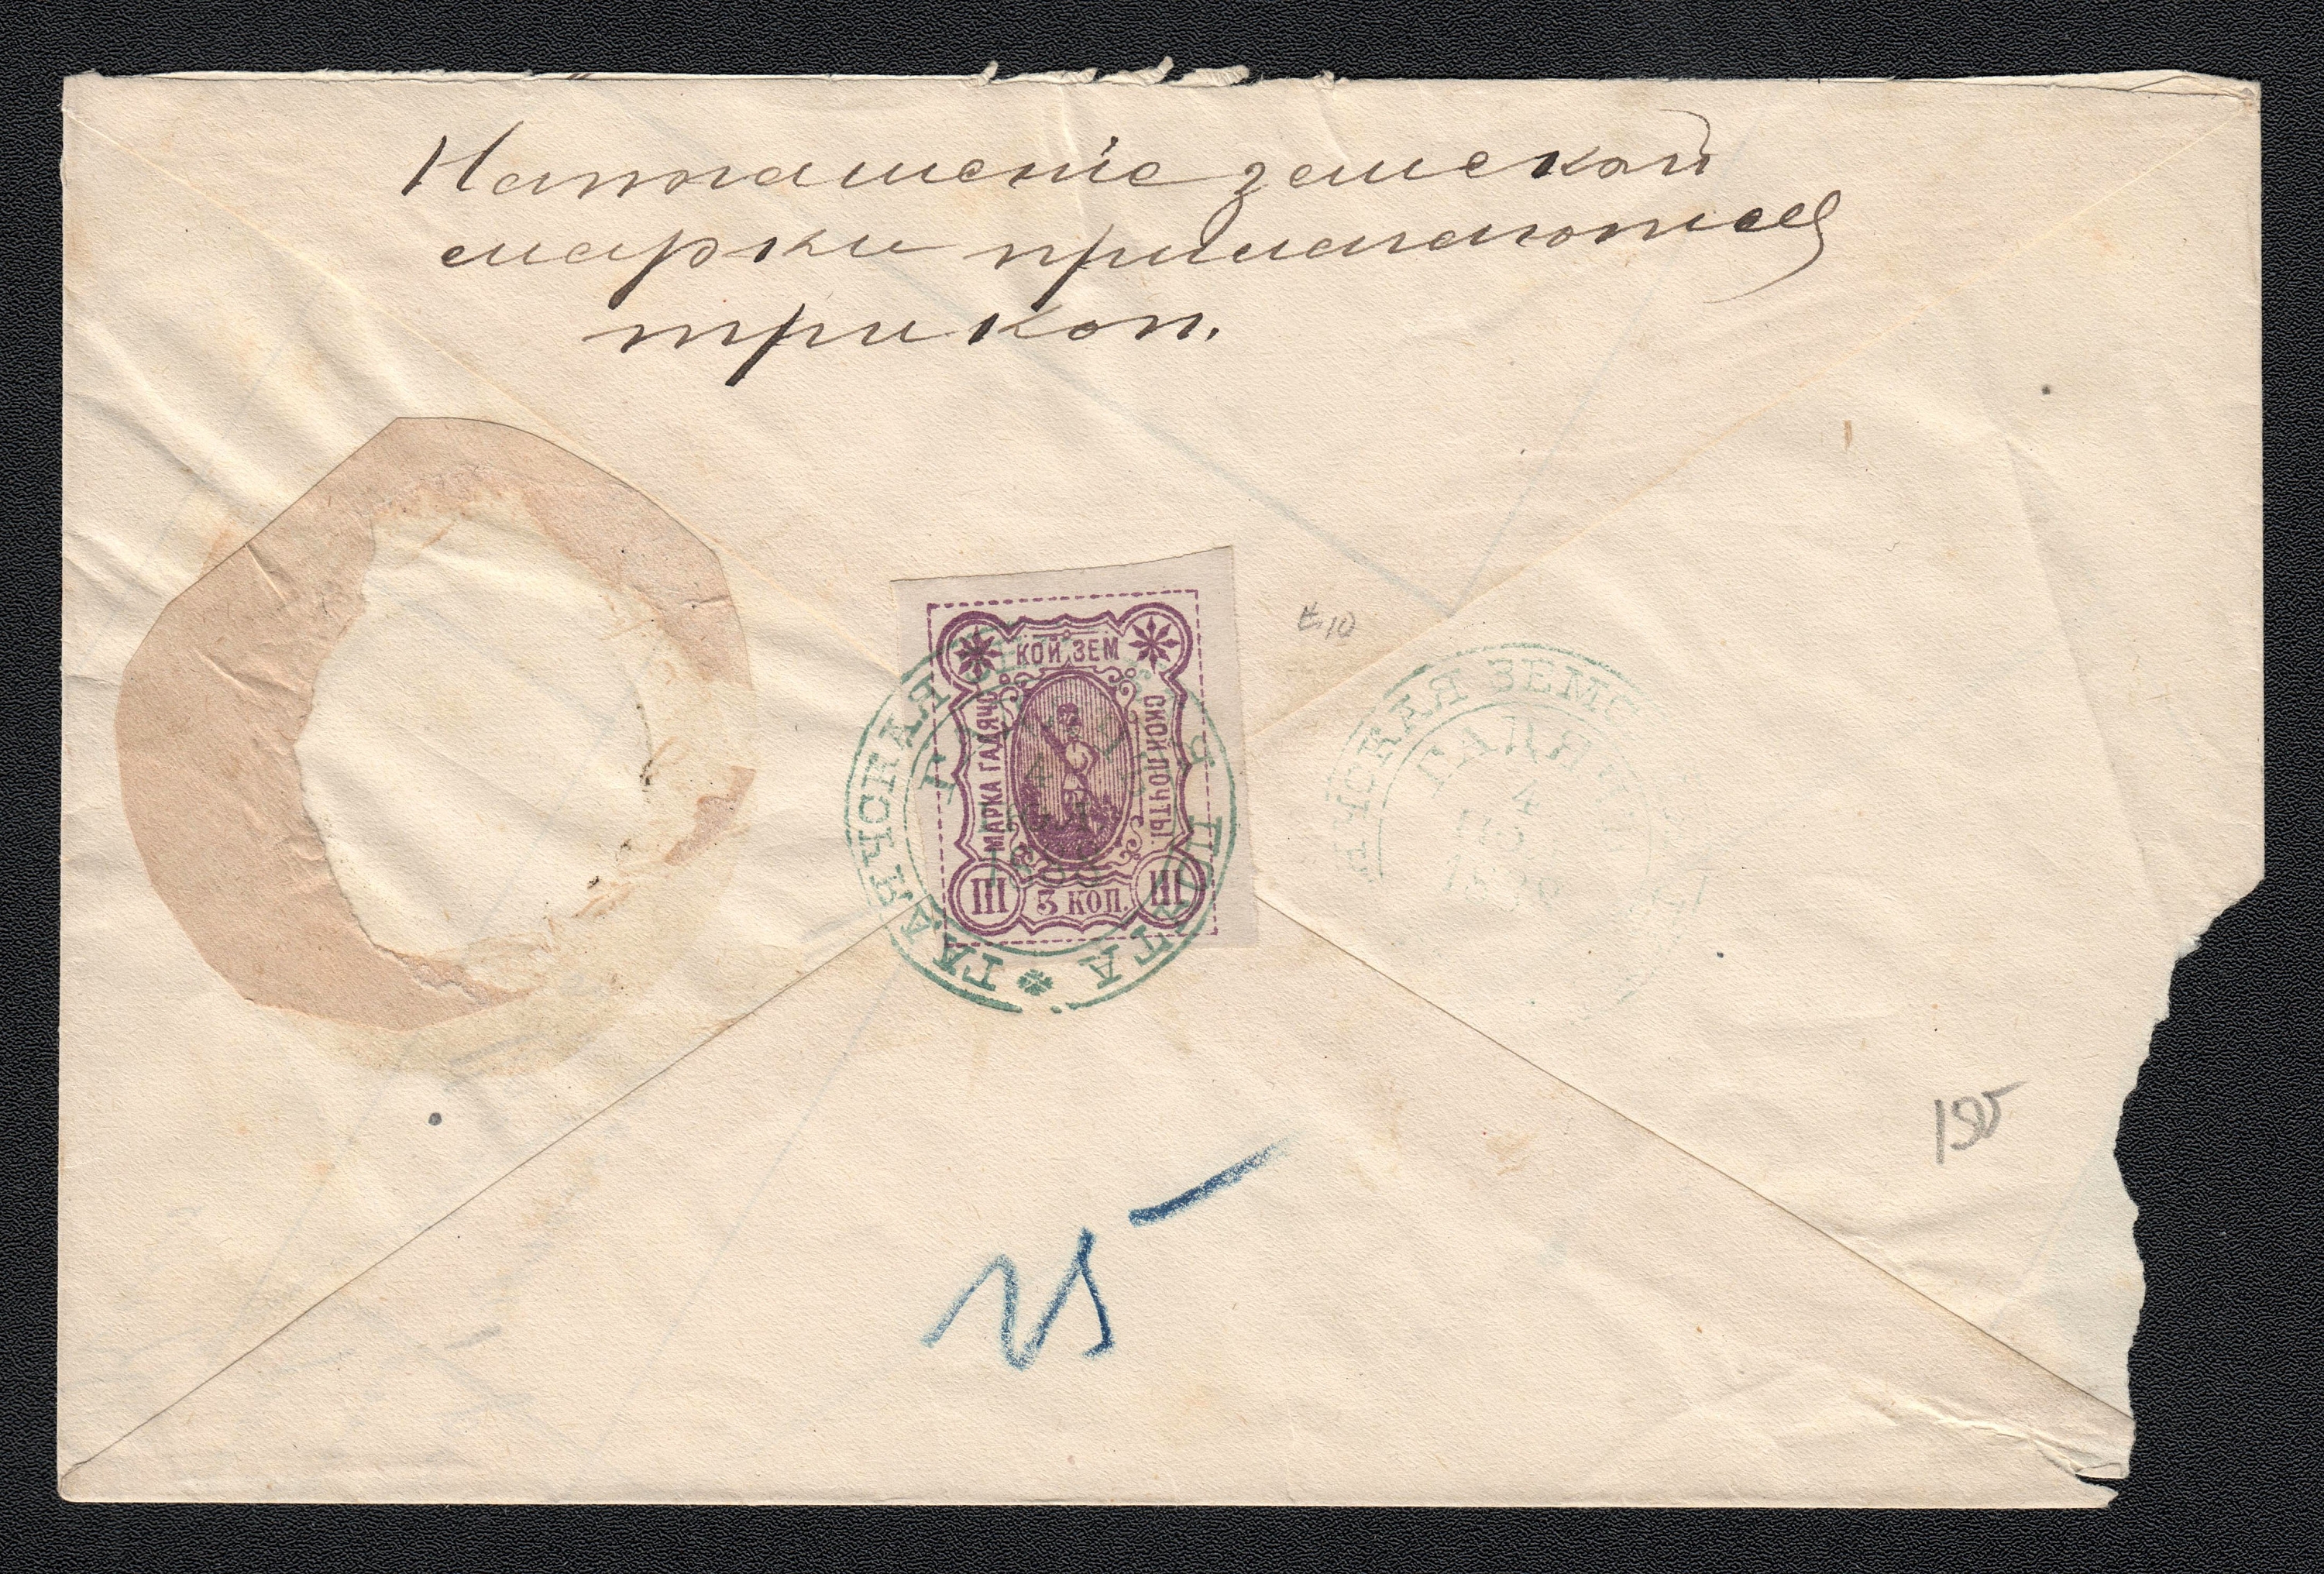 На погашеніе земской
марки прилагаются
три коп.
КОЙ ЗЕМ
МАРКА ГАДЯЧС
СКОЙ ПОЧТЫ
III 3 КОП. III
ГАДЯЧСКАЯ ПОЧТА
ЧСКАЯ ЗЕМС
ГАДЯЧ
4
15
195